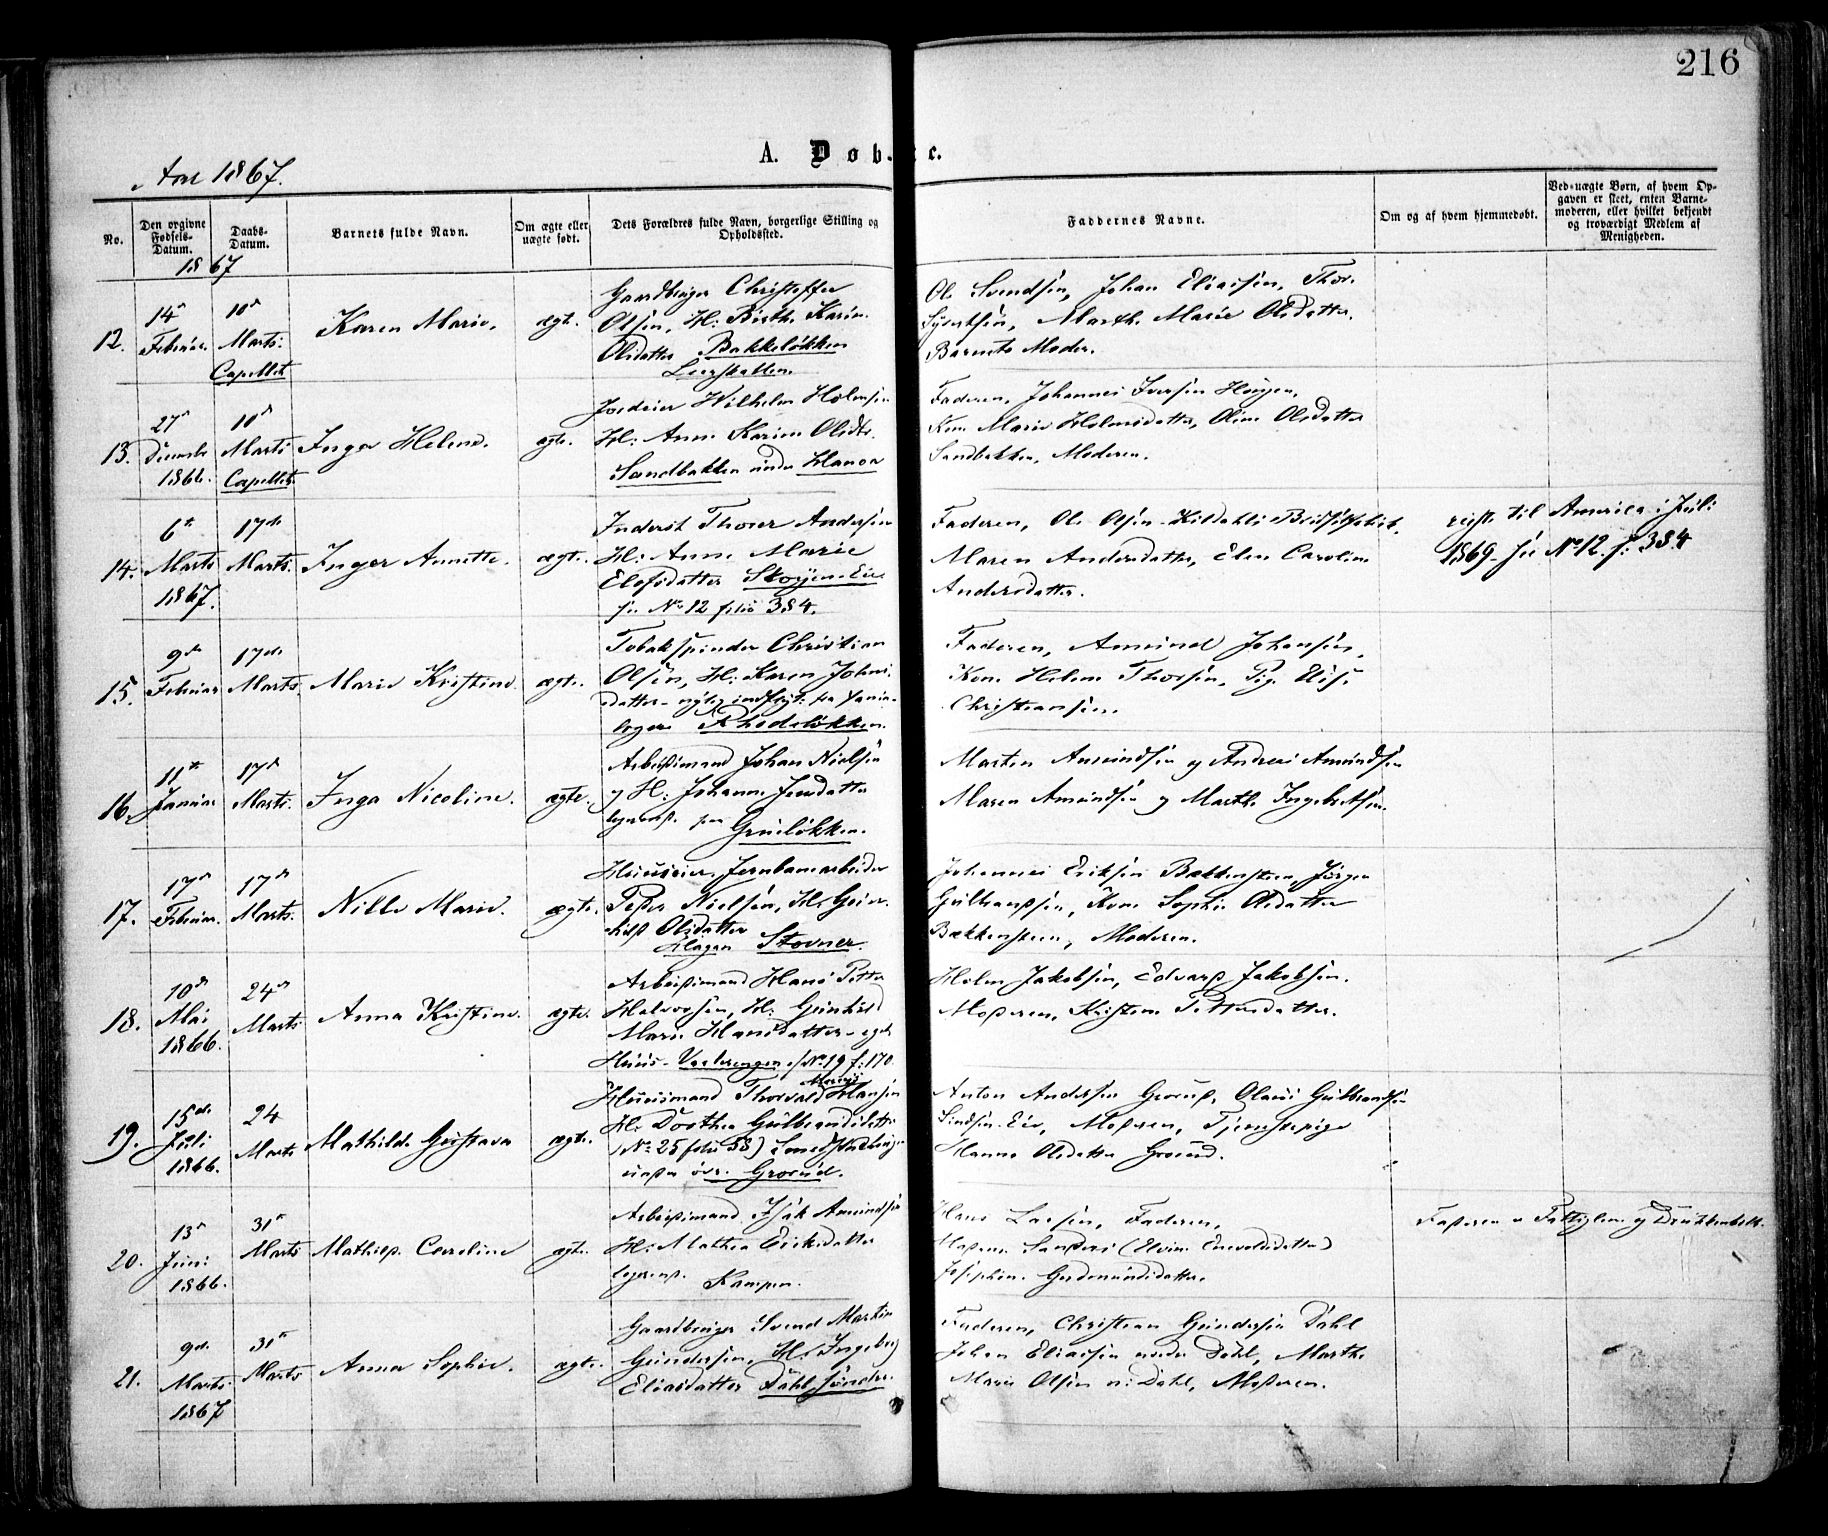 216
A. Døb e.
Aar 1867.
No.
Den opgivne Fødsels-Datum.
Daabs-Datum.
Barnets fulde Navn.
Om ægte eller uægte født.
Dets Forældres fulde Navn, borgerlige Stilling og Opholdssted.
Faddernes Navne.
Om og af hvem hjemmedøbt.
Ved uægte Børn, af hvem Opgaven er skeet, enten Barnemoderen, eller hvilket bekjendt og troværdigt Medlem af Menigheden.
1867
12.
14de Februar.
10de Marts. Capellet
Karen Marie.
ægte.
Gaardbruger Christoffer
Olsen, H: Birthe Karine
Olsdatter Bakkeløkken
Leerskallen.
Ole Svendsen, Johan Eliasen, Thor
Syvertsen, Marthe Marie Olsdatter.
Barnets Moder.
13.
27de Decembr 1866.
10de Marts Capellet
Inger Helene.
ægte.
Jordeier Wilhelm Holmsen
H: Anne Karine Olsdtr.
Sandbakken under
Faderen, Johannes Iversen Haugen,
Kone Marie Holmsdatter, Oline Olsdatter
Sandbakken, Moderen.
14.
6te Marts 1867.
17de Marts.
Inger Annette.
ægte.
Inderst Thorer Andersen
H: Anne Marie
Elefsdatter Skøyen-Eie
se No 12 folio 384.
Faderen, Ole Olsen
Maren Andersdatter, Elen Caroline
Andersdatter.
reiste til America i Juli
1869. see No 12. f: 384
15.
9de Februar
17de Marts
Marie Kristine.
ægte.
Tobakspinder Christian
Olsen, H: Karen Johns
datter - nylig indflyt: fra
logere Rhodeløkken.
Faderen, Amund Johansen,
Kone Helene Thorsen, Pige Elise
Christiansen.
16.
11te Januar
17de Marts.
Inga Nicoline.
ægte.
Arbeidsmand Johan Nielsen
og H: Johanne Jensdatter
logerend. paa Grüneløkken.
Marten Amundsen og Andreas Amundsen
Maren Amundsen og Marthe Ingebretsen.
17.
17de Februar.
17de Marts.
Nille Marie.
ægte.
Huuseier, Jernbanearbeider
Peder Nielsen, H: Gun
hild Olsdatter
Hagen Stovner.
Johannes Eriksen Bakkensteen, Jørgen
Gulbrandsen, Kone Sophie Olsdatter
Bækkensteen, Moderen.
18.
10de Mai 1866.
24de Marts
Anna Kristine.
ægte.
Arbeidsmand Hans Petter
Halvorsen, H: Gunhild
Marie Hansdatter - eget
Huus - Vaalerengen s/ No 19 f: 170
Holm Jakobsen, Edvard Jakobsen.
Moderen, Kristine Pettersdatter.
19.
15de Juli 1866.
24 Marts
Mathilde Gustava
ægte.
Huusmand Thorvald Hansen
H: Dorthea Gulbrandsdatter
(No 25 folio 53)
øvr. Grorud.
Anton Andersen Grorud, Olaves Gulbrandsen
Lindsen-Eie, Moderen, Tjenestepige
Hanna Olsdatter Grorud.
20.
13de Juni 1866.
31te Marts
Mathild Caroline
ægte.
Arbeidsmand Isak Amundsen
H: Mathea Eriksdatter
logerend. Kampen.
Hans Larsen, Faderen,
Josephine Gudmundsdatter.
21.
9de Marts. 1867
31te Marts
Anna Sophie.
ægte.
Gaardbruger Svend Martin
Gundersen, H: Ingeborg
Eliasdatter Dahl søndre.
Faderen, Christian Gundersen Dahl
Johan Eliassen nordre Dahl, Marthe
Marie Olsen n: Dahl, Moderen.